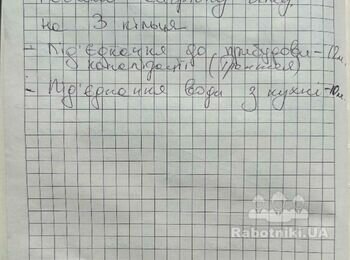 на 3 кільця
- Під'єднання до прибудови - 12м.
каналізації (траншея)
- Під'єднання води з кухні - 10м.
Rabotniki.UA